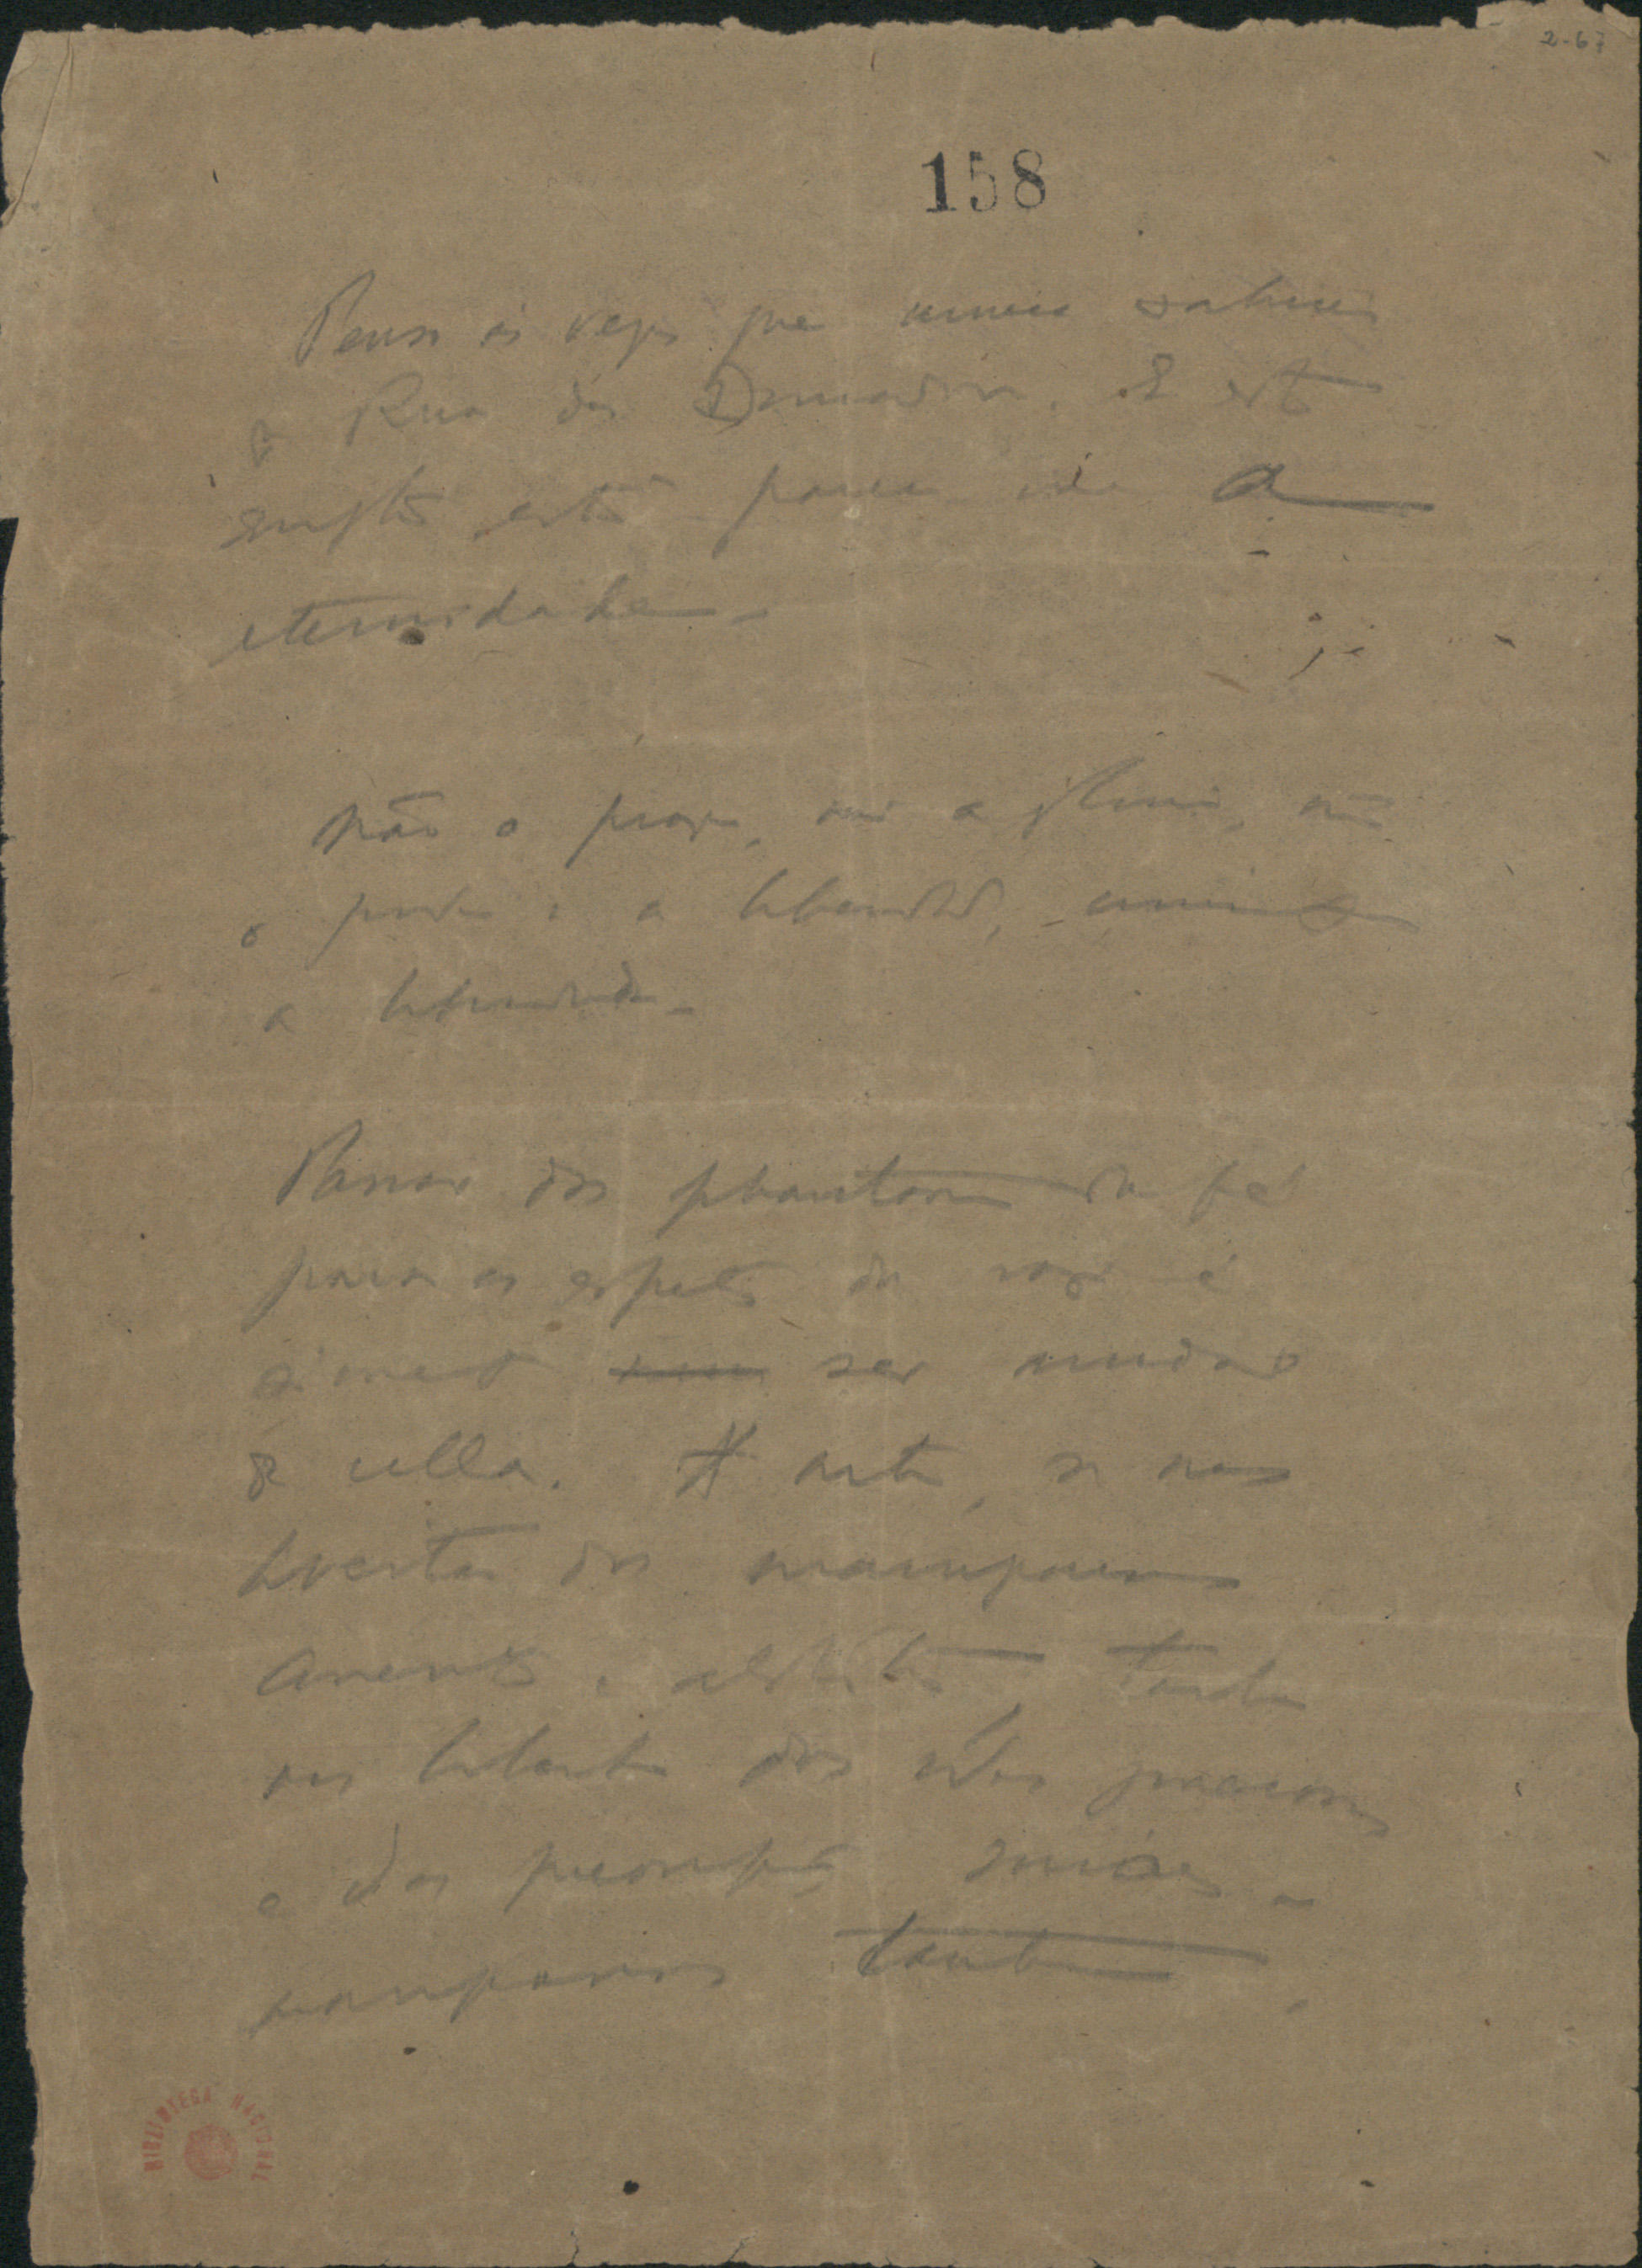 2-67
158
Penso ás vezes que nunca sahirei
da Rua dos Douradores. E isto
escripto, então, parece-me a
eternidade.
Não o prazer, não a gloria, não
o poder: a liberdade, unicamente
a liberdade.
Passar dos phantasmas da fé
para os espectros da razão é
sómente ser mudado
de cella. A arte, se nos
liberta dos manipansos
assentes e abstractos, tambem
nos liberta das idéas generosas
e das preoccupações sociaes -
manipansos tambem.
BIBLIOTECA NACIONAL